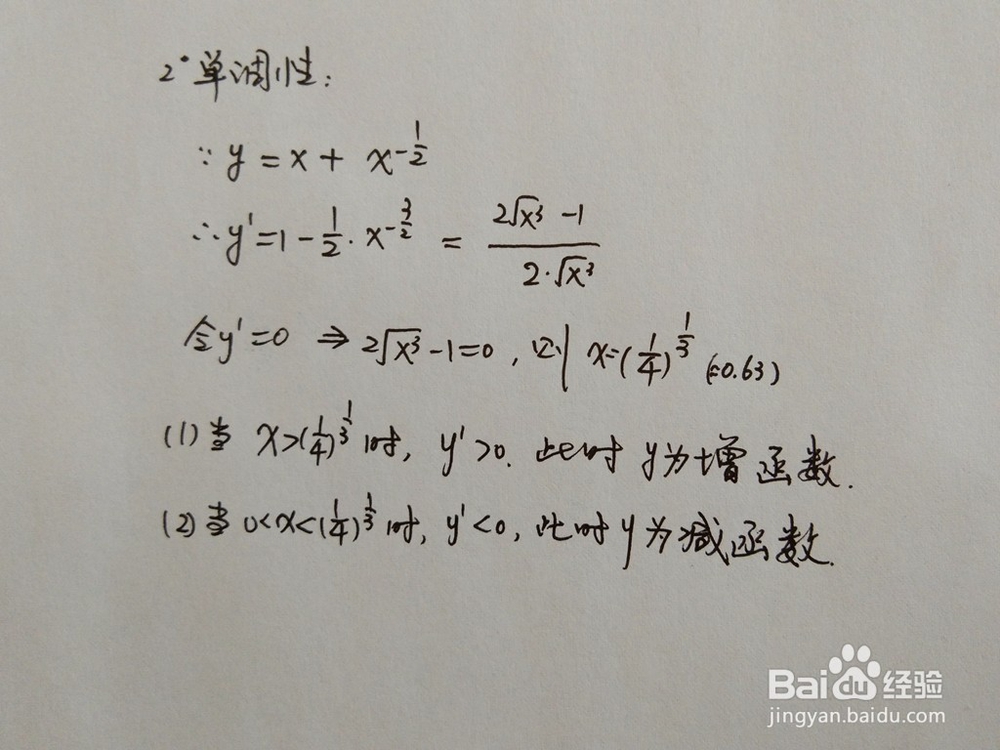 2° 单调性:
∵ y = x + x^{-1/2}
∴ y' = 1 - 1/2 · x^{-3/2} = (2√x³ - 1)/(2·√x³)
令y'=0 ⇒ 2√x³ - 1 = 0, 则 x=(1/4)^{1/3} (≈0.63)
(1) 当 x>(1/4)^{1/3} 时, y'>0. 此时 y为增函数.
(2) 当 0<x<(1/4)^{1/3} 时, y'<0, 此时 y为减函数.
Baidu 经验
jingyan.baidu.com